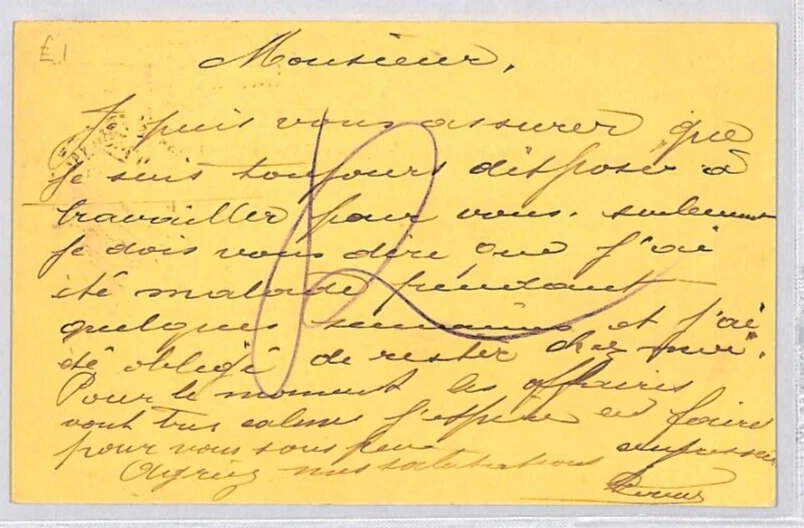 £1
Monsieur,
Je puis vous assurer que
je suis toujours disposé à
travailler pour vous. seulement
je dois vous dire que j'ai
été malade pendant
quelques semaines et j'ai
été obligé de rester chez moi.
Pour le moment les affaires
vont très calme j'espère en faire
pour vous sous peu
Agréez mes salutations empressées